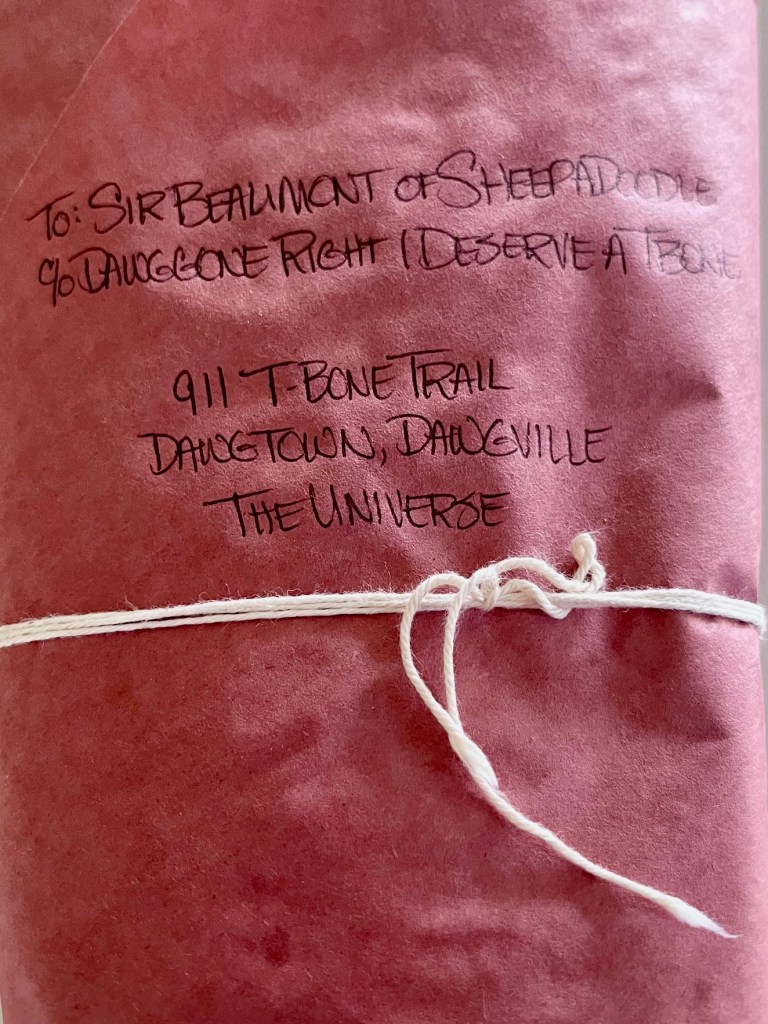 To: SIR BEAUMONT OF SHEEPADOODLE
c/o DAWGGONE RIGHT I DESERVE A TBONE
911 T-BONE TRAIL
DAWGTOWN, DAWGVILLE
THE UNIVERSE